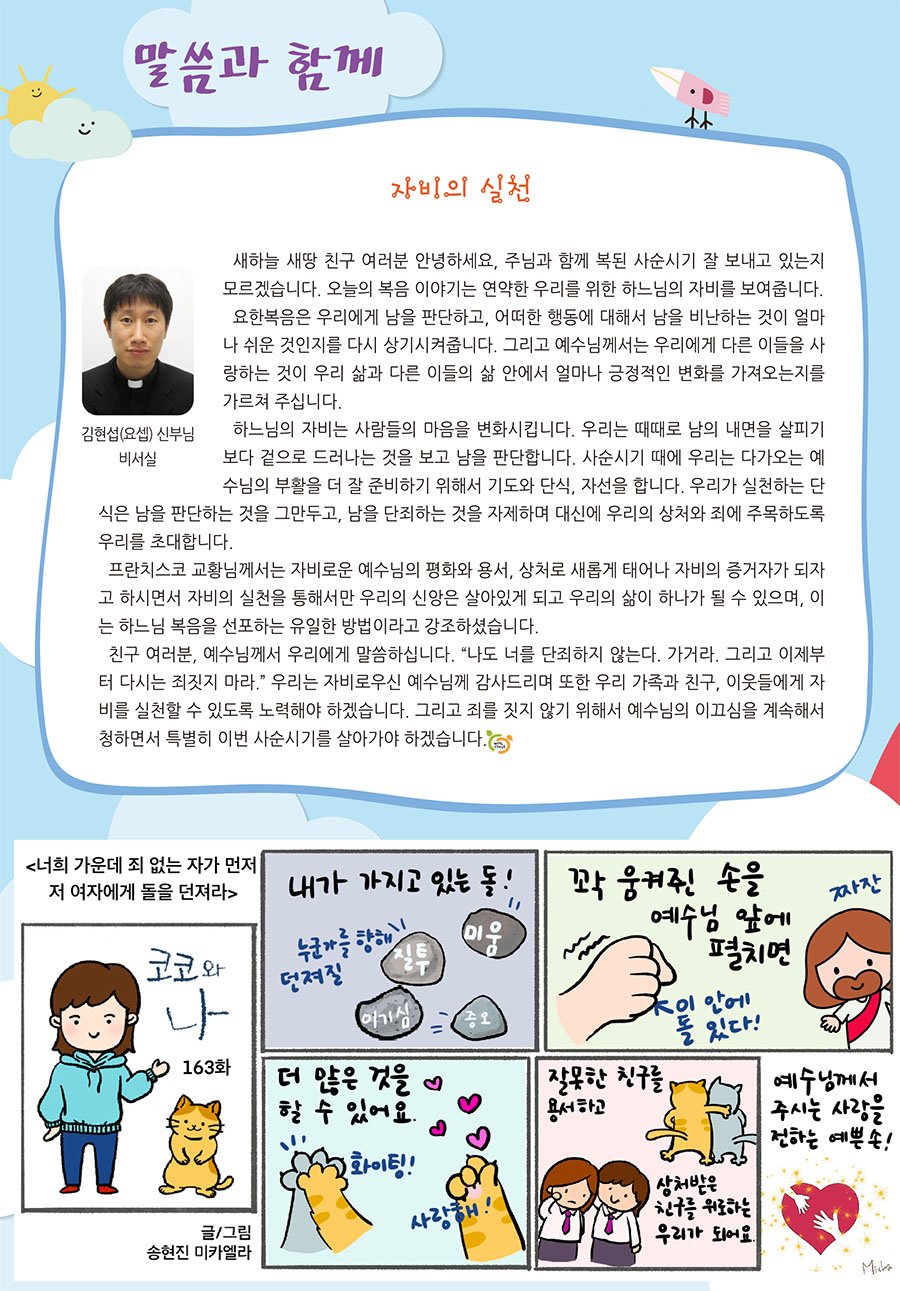 말씀과 함께
자비의 실천
새하늘 새땅 친구 여러분 안녕하세요, 주님과 함께 복된 사순시기 잘 보내고 있는지
모르겠습니다. 오늘의 복음 이야기는 연약한 우리를 위한 하느님의 자비를 보여줍니다.
요한복음은 우리에게 남을 판단하고, 어떠한 행동에 대해서 남을 비난하는 것이 얼마
나 쉬운 것인지를 다시 상기시켜줍니다. 그리고 예수님께서는 우리에게 다른 이들을 사
랑하는 것이 우리 삶과 다른 이들의 삶 안에서 얼마나 긍정적인 변화를 가져오는지를
가르쳐 주십니다.
하느님의 자비는 사람들의 마음을 변화시킵니다. 우리는 때때로 남의 내면을 살피기
보다 겉으로 드러나는 것을 보고 남을 판단합니다. 사순시기 때에 우리는 다가오는 예
수님의 부활을 더 잘 준비하기 위해서 기도와 단식, 자선을 합니다. 우리가 실천하는 단
식은 남을 판단하는 것을 그만두고, 남을 단죄하는 것을 자제하며 대신에 우리의 상처와 죄에 주목하도록
우리를 초대합니다.
프란치스코 교황님께서는 자비로운 예수님의 평화와 용서, 상처로 새롭게 태어나 자비의 증거자가 되자
고 하시면서 자비의 실천을 통해서만 우리의 신앙은 살아있게 되고 우리의 삶이 하나가 될 수 있으며, 이
는 하느님 복음을 선포하는 유일한 방법이라고 강조하셨습니다.
친구 여러분, 예수님께서 우리에게 말씀하십니다. “나도 너를 단죄하지 않는다. 가거라. 그리고 이제부
터 다시는 죄짓지 마라.” 우리는 자비로우신 예수님께 감사드리며 또한 우리 가족과 친구, 이웃들에게 자
비를 실천할 수 있도록 노력해야 하겠습니다. 그리고 죄를 짓지 않기 위해서 예수님의 이끄심을 계속해서
청하면서 특별히 이번 사순시기를 살아가야 하겠습니다.
김현섭(요셉) 신부님
비서실
<너희 가운데 죄 없는 자가 먼저
저 여자에게 돌을 던져라>
코코와
나
163화
글/그림
송현진 미카엘라
내가 가지고 있는 돌!
누군가를 향해
던져질
질투
미움
이기심
증오
꼬악 움켜쥔 손을
예수님 앞에
펼치면
짜잔
이 안에
돌 있다!
더 많은 것을
할 수 있어요.
화이팅!
사랑해!
잘못한 친구를
용서하고
상처받은
친구를 위로하는
우리가 되어요.
예수님께서
주시는 사랑을
전하는 예쁜손!